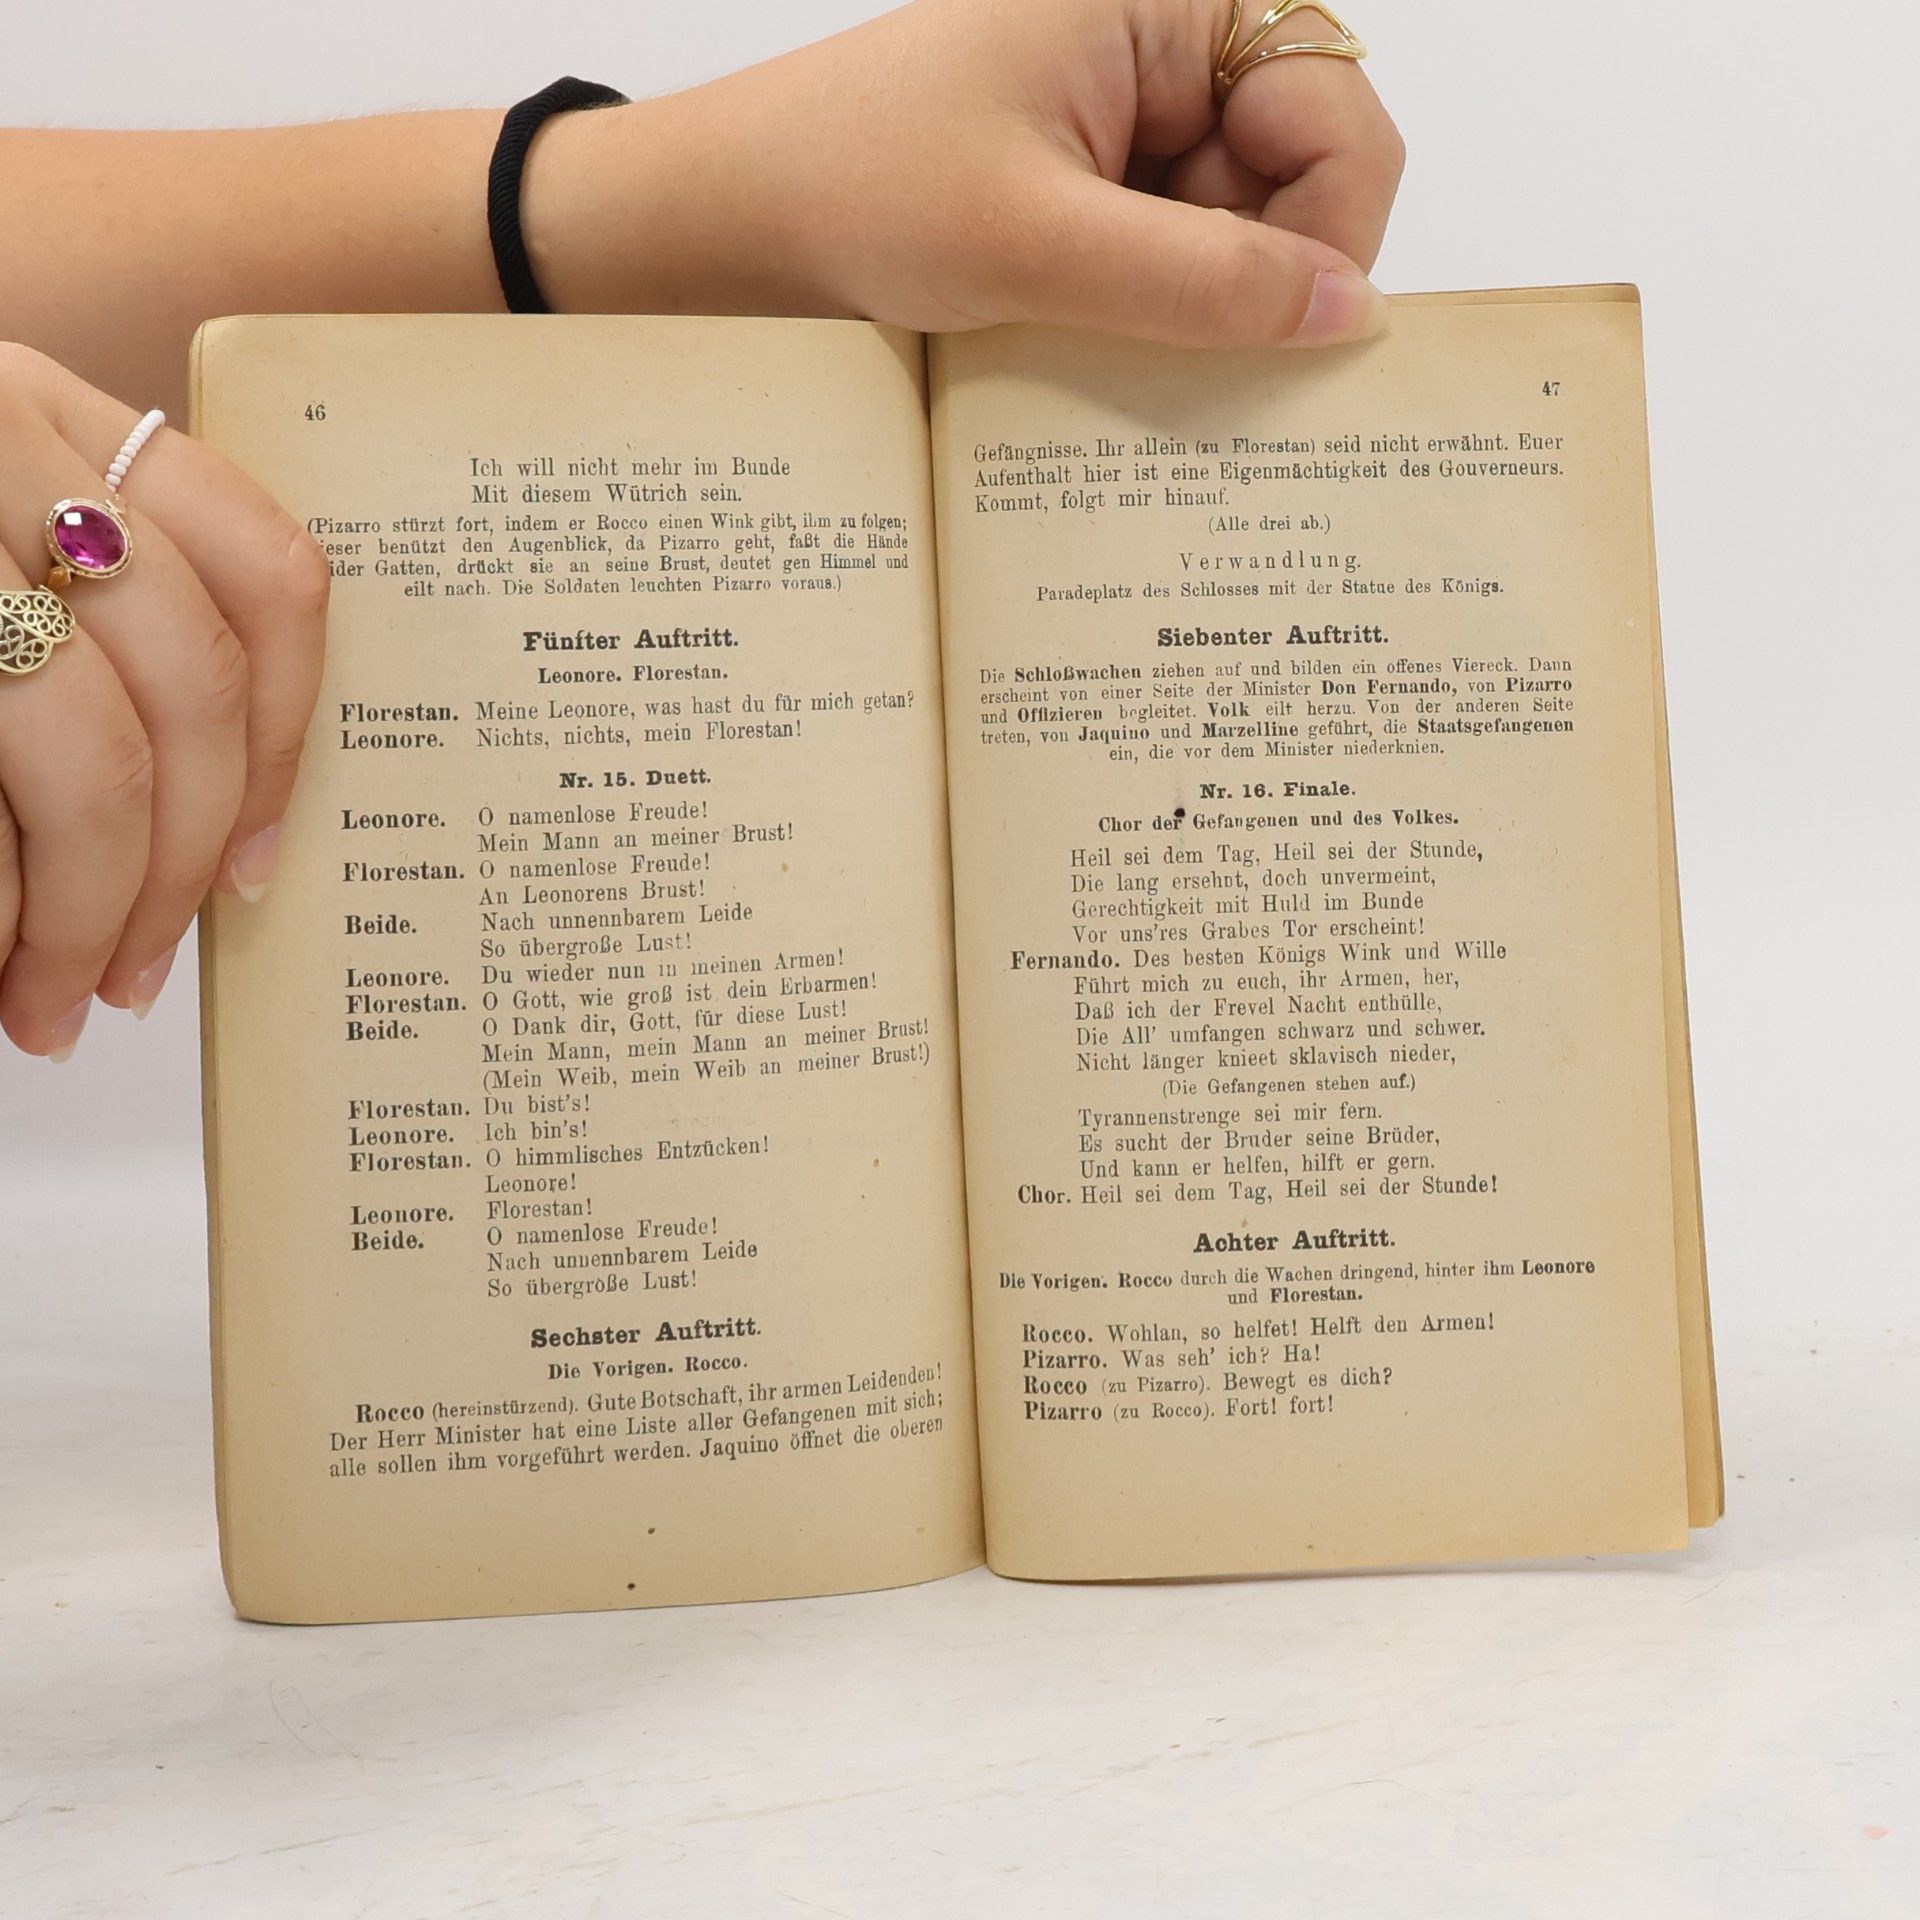 46
Ich will nicht mehr im Bunde
Mit diesem Wütrich sein.
(Pizarro stürzt fort, indem er Rocco einen Wink gibt, ihm zu folgen;
ieser benützt den Augenblick, da Pizarro geht, faßt die Hände
ider Gatten, drückt sie an seine Brust, deutet gen Himmel und
eilt nach. Die Soldaten leuchten Pizarro voraus.)
Fünfter Auftritt.
Leonore. Florestan.
Florestan. Meine Leonore, was hast du für mich getan?
Leonore. Nichts, nichts, mein Florestan!
Nr. 15. Duett.
Leonore. O namenlose Freude!
Mein Mann an meiner Brust!
Florestan. O namenlose Freude!
An Leonorens Brust!
Beide. Nach unnennbarem Leide
So übergroße Lust!
Leonore. Du wieder nun in meinen Armen!
Florestan. O Gott, wie groß ist dein Erbarmen!
Beide. O Dank dir, Gott, für diese Lust!
Mein Mann, mein Mann an meiner Brust!
(Mein Weib, mein Weib an meiner Brust!)
Florestan. Du bist's!
Leonore. Ich bin's!
Florestan. O himmlisches Entzücken!
Leonore!
Leonore. Florestan!
Beide. O namenlose Freude!
Nach unnennbarem Leide
So übergroße Lust!
Sechster Auftritt.
Die Vorigen. Rocco.
Rocco (hereinstürzend). Gute Botschaft, ihr armen Leidenden!
Der Herr Minister hat eine Liste aller Gefangenen mit sich;
alle sollen ihm vorgeführt werden. Jaquino öffnet die oberen
47
Gefängnisse. Ihr allein (zu Florestan) seid nicht erwähnt. Euer
Aufenthalt hier ist eine Eigenmächtigkeit des Gouverneurs.
Kommt, folgt mir hinauf.
(Alle drei ab.)
Verwandlung.
Paradeplatz des Schlosses mit der Statue des Königs.
Siebenter Auftritt.
Die Schloßwachen ziehen auf und bilden ein offenes Viereck. Dann
erscheint von einer Seite der Minister Don Fernando, von Pizarro
und Offizieren begleitet. Volk eilt herzu. Von der anderen Seite
treten, von Jaquino und Marzelline geführt, die Staatsgefangenen
ein, die vor dem Minister niederknien.
Nr. 16. Finale.
Chor der Gefangenen und des Volkes.
Heil sei dem Tag, Heil sei der Stunde,
Die lang ersehnt, doch unvermeint,
Gerechtigkeit mit Huld im Bunde
Vor uns'res Grabes Tor erscheint!
Fernando. Des besten Königs Wink und Wille
Führt mich zu euch, ihr Armen, her,
Daß ich der Frevel Nacht enthülle,
Die All' umfangen schwarz und schwer.
Nicht länger knieet sklavisch nieder,
(Die Gefangenen stehen auf.)
Tyrannenstrenge sei mir fern.
Es sucht der Bruder seine Brüder,
Und kann er helfen, hilft er gern.
Chor. Heil sei dem Tag, Heil sei der Stunde!
Achter Auftritt.
Die Vorigen. Rocco durch die Wachen dringend, hinter ihm Leonore
und Florestan.
Rocco. Wohlan, so helfet! Helft den Armen!
Pizarro. Was seh' ich? Ha!
Rocco (zu Pizarro). Bewegt es dich?
Pizarro (zu Rocco). Fort! fort!